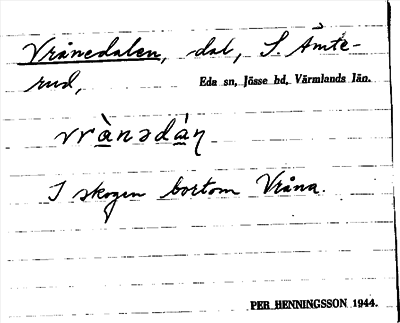 Vrånedalen, dal, S. Åmte-
rud, Eda sn, Jösse hd, Värmlands län.
vrànədáṇ
I skogen bortom Vråna.
PER HENNINGSSON 1944.